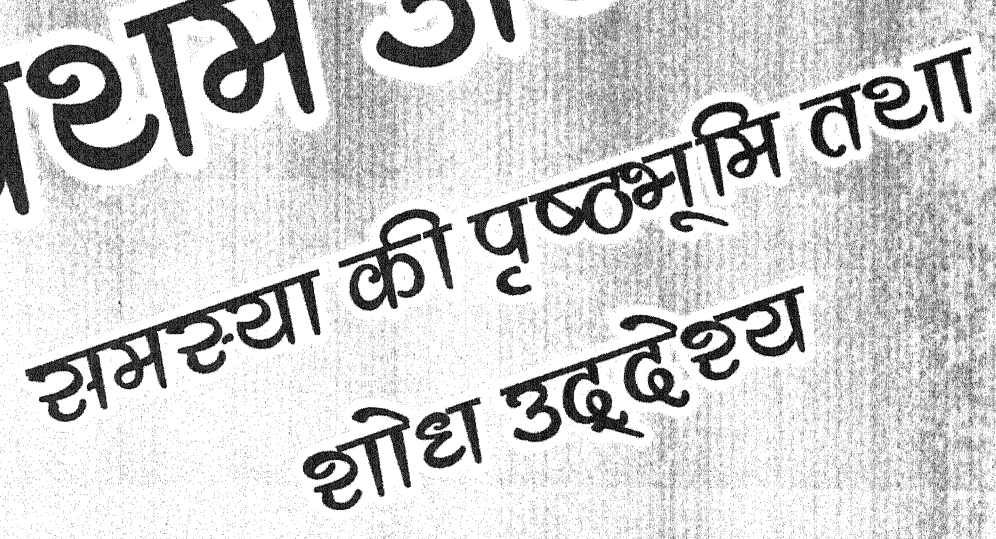 समस्या की पृष्ठभूमि तथा
शोध उद्‌देश्य